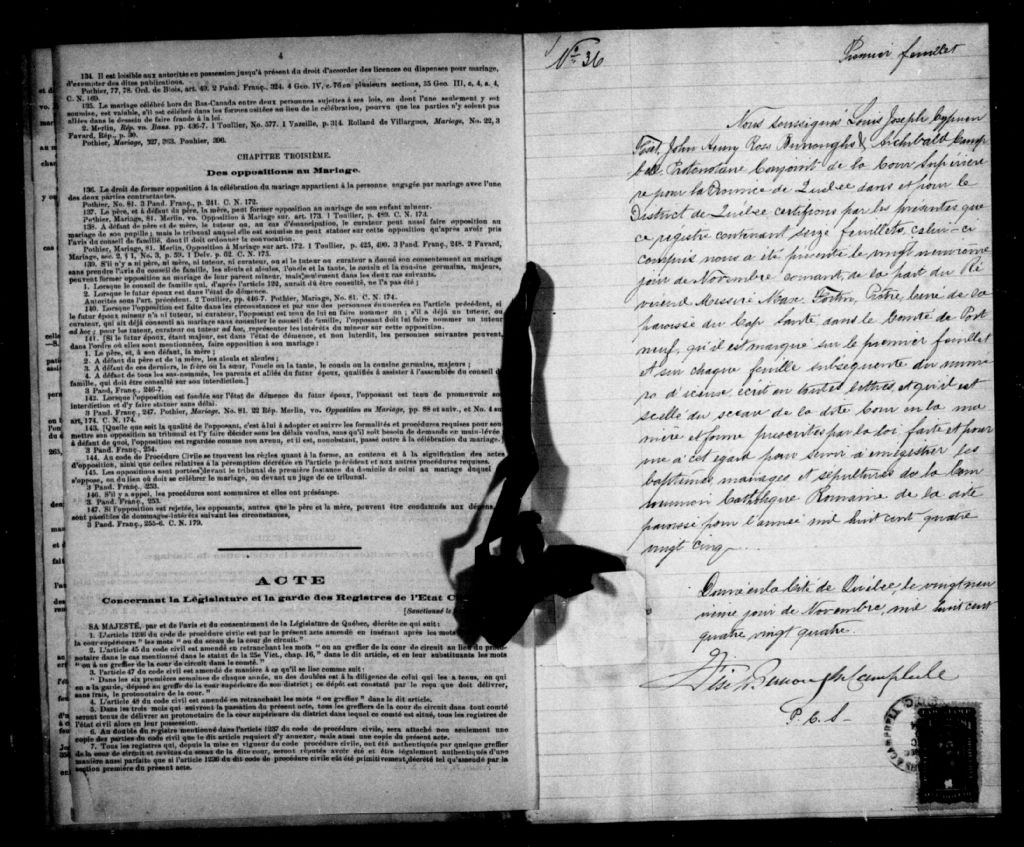 4
134. Il est loisible aux autorités en possession jusqu'à présent du droit d'accorder des licences ou dispenses pour mariage,
d'exempter des dites publications.
Pothier, 77, 78. Ord. de Blois, art. 40. 2 Pand. Franç., 324. 4 Geo. IV, c. 76 en plusieurs sections, 35 Geo. III, c. 4, s. 4,
C. N. 169.
135. Le mariage célébré hors du Bas-Canada entre deux personnes sujettes à ses lois, ou dont l'une seulement y est
soumise, est valable, s'il est célébré dans les formes usitées au lieu de la célébration, pourvu que les parties n'y soient pas
allées dans le dessein de faire fraude à la loi.
2. Merlin, Rép. vo. Bans. pp. 436-7. 1 Toullier, No. 577. 1 Vazeille, p. 314. Rolland de Villargues, Mariage, No. 22, 3
Favard, Rép., p. 30.
Pothier, Mariage, 327, 363. Pouhier, 396.
CHAPITRE TROISIÈME.
Des oppositions au Mariage.
136. Le droit de former opposition à la célébration du mariage appartient à la personne engagée par mariage avec l'une
des deux parties contractantes.
Pothier, No. 81. 3 Pand. Franç., p. 241. C. N. 172.
137. Le père, et à défaut du père, la mère, peut former opposition au mariage de son enfant mineur.
Pothier, Mariage, 81. Merlin. vo. Opposition à Mariage sur. art. 173. 1 Toullier, p. 489. C. N. 173.
138. A défaut de père et de mère, le tuteur ou, au cas d'émancipation, le curateur peut aussi faire opposition au
mariage de son pupille; mais le tribunal auquel elle est soumise ne peut statuer sur cette opposition qu'après avoir pris
l'avis du conseil de famille, dont il doit ordonner la convocation.
Pothier, Mariage, 81. Merlin, Opposition à Mariage sur art. 172. 1 Toullier, p. 425, 490. 3 Pand. Franç., 248. 2 Favard,
Mariage, sec. 2, § 1, No. 3, p. 59. 1 Delv. p. 62. C. N. 175.
139. S'il n'y a ni père, ni mère, ni tuteur, ni curateur, ou si le tuteur ou curateur a donné son consentement au mariage
sans prendre l'avis du conseil de famille, les aïeuls et aïeules, l'oncle et la tante, le cousin et la cousine germains, majeurs,
peuvent former opposition au mariage de leur parent mineur; mais seulement dans les deux cas suivants.
1. Lorsque le conseil de famille qui, d'après l'article 122, aurait dû être consulté, ne l'a pas été;
2. Lorsque le futur époux est dans l'état de démence.
Autorités sous l'art. précédent. 2 Toullier, pp. 416-7. Pothier, Mariage, No. 81. C. N. 174.
140. Lorsque l'opposition est faite dans les circonstances et par une des personnes énumérées en l'article précédent, si
le futur époux mineur n'a ni tuteur, ni curateur, l'opposant est tenu de lui en faire nommer un; s'il a déjà un tuteur, ou
curateur, qui ait déjà consenti au mariage sans consulter le conseil de famille, l'opposant doit lui faire nommer un tuteur
ad hoc; pour les tuteur, curateur ou tuteur ad hoc, représenter les intérêts du mineur sur cette opposition.
141. [Si le futur époux, étant majeur, est dans l'état de démence, et non interdit, les personnes suivantes peuvent,
dans l'ordre où elles sont mentionnées, faire opposition à son mariage:
1. Le père, et, à son défaut, la mère;
2. A défaut du père et de la mère, les aïeuls et aïeules;
3. A défaut de ces derniers, le frère ou la sœur, l'oncle ou la tante, le cousin ou la cousine germains, majeurs;
4. A défaut de tous les sus-nommés, les parents et alliés du futur époux, qualifiés à assister à l'assemblée du conseil de
famille, qui doit être consulté sur son interdiction.]
3 Pand. Franç., 246-7.
142. Lorsque l'opposition est fondée sur l'état de démence du futur époux, l'opposant est tenu de promouvoir son
interdiction et d'y faire statuer sans délai.
3 Pand. Franç., 247. Pothier, Mariage, No. 81. 22 Rép. Merlin, vo. Opposition au Mariage, pp. 88 et suiv., et No. 4 sur
art. 174. C. N. 174.
143. [Quelle que soit la qualité de l'opposant, c'est à lui à adopter et suivre les formalités et procédures requises pour sou-
mettre son opposition au tribunal et l'y faire décider sous les délais voulus, sans qu'il soit besoin de demande en main-levée;
à défaut de quoi, l'opposition est regardée comme non avenu, et il est, nonobstant, passé outre à la célébration du mariage.]
3 Pand. Franç., 254.
144. Au code de Procédure Civile se trouvent les règles quant à la forme, au contenu et à la signification des actes
d'opposition, ainsi que celles relatives à la péremption décrétée en l'article précédent et aux autres procédures requises.
145. Les oppositions sont portées devant le tribunal de première instance du domicile de celui au mariage duquel on
s'oppose, ou du lieu où doit se célébrer le mariage, ou devant un juge de ce tribunal.
3 Pand. Franç., 253.
146. S'il y a appel, les procédures sont sommaires et elles ont préséance.
3 Pand. Franç., 253.
147. Si l'opposition est rejetée, les opposants, autres que le père et la mère, peuvent être condamnés aux dépens, et
sont passibles de dommages-intérêts suivant les circonstances,
3 Pand. Franç., 255-6. C. N. 179.
ACTE
Concernant la Législature et la garde des Registres de l'Etat C
[Sanctionné le
SA MAJESTÉ, par et de l'avis et du consentement de la Législature de Québec, décrète ce qui suit:
1. L'article 1236 du code de procédure civile est par le présent acte amendé en insérant après les mots
la cour supérieure" les mots "ou du sceau de la cour de circuit."
2. L'article 45 du code civil est amendé en retranchant les mots "ou au greffier de la cour de circuit au lieu du proto-
notaire dans le cas mentionné dans le statut de la 25e Vict., chap. 16," dans le dit article, et en leur substituants les mots
"ou à un greffier de la cour de circuit dans le comté."
3. L'article 47 du code civil est amendé de manière à ce qu'il se lise comme suit:
"Dans les six premières semaines de chaque année, un des doubles est à la diligence de celui qui les a tenus, ou qui
en a la garde, déposé au greffe de la cour supérieure de son district; ce dépôt est constaté par le reçu que doit délivrer,
sans frais, le protonotaire de la cour."
4. L'article 48 du code civil est amendé en retranchant les mots "ou greffier" dans le dit article.
5. Dans les trois mois qui suivront la passation du présent acte, tous les greffiers de la cour de circuit dans tout comté
seront tenus de délivrer au protonotaire de la cour supérieure du district dans lequel ce comté est situé, tous les registres de
l'état civil alors en leur possession.
6. Au double du registre mentionné dans l'article 1237 du code de procédure civile, sera attaché non seulement une
copie des parties du code civil que le dit article requiert d'y annexer, mais aussi une copie du présent acte.
7. Tous les registres qui, depuis la mise en vigueur du code procédure civile, ont été authentiqués par quelque greffier
de la cour de circuit et revêtus du sceau de la dite cour, seront réputés avoir été et être légalement authentiqués d'une
manière aussi parfaite que si l'article 1236 du dit code de procédure civile eût été primitivement décrété tel qu'amendé par la
section première du présent acte.
No 36
Premier feuillet
Nous soussignés Louis Joseph Cyprien
Fiset, John Henry Ross Burroughs & Archibald Camp-
bell Protonotaire Conjoint de la Cour Supérieu-
re pour la Province de Québec dans et pour le
District de Québec certifions par les présentes que
ce registre contenant seize feuillets, celui-ci
compris nous a été présenté le vingt neuvième
jour de Novembre courant, de la part du Ré
vérend Messire Fortin, Prêtre, Curé de la
paroisse du Cap Santé dans le Comté de Port
neuf, qu'il est marqué sur le premier feuillet
et sur chaque feuille subséquente du numé
ro d'icelui écrit en toutes lettres et qu'il est
scellé du sceau de la dite Cour en la ma
nière et forme prescrites par la loi faite et pour
vue à cet égard pour servir à enregistrer les
baptêmes, mariages et sépultures de la Com
munion Catholique Romaine de la dite
paroisse pour l'année mil huit cent quatre
vingt cinq
Donné en la cité de Québec, le vingt neu
vième jour de Novembre, mil huit cent
quatre vingt quatre.
Fiset Burroughs Campbell
P. C. S.